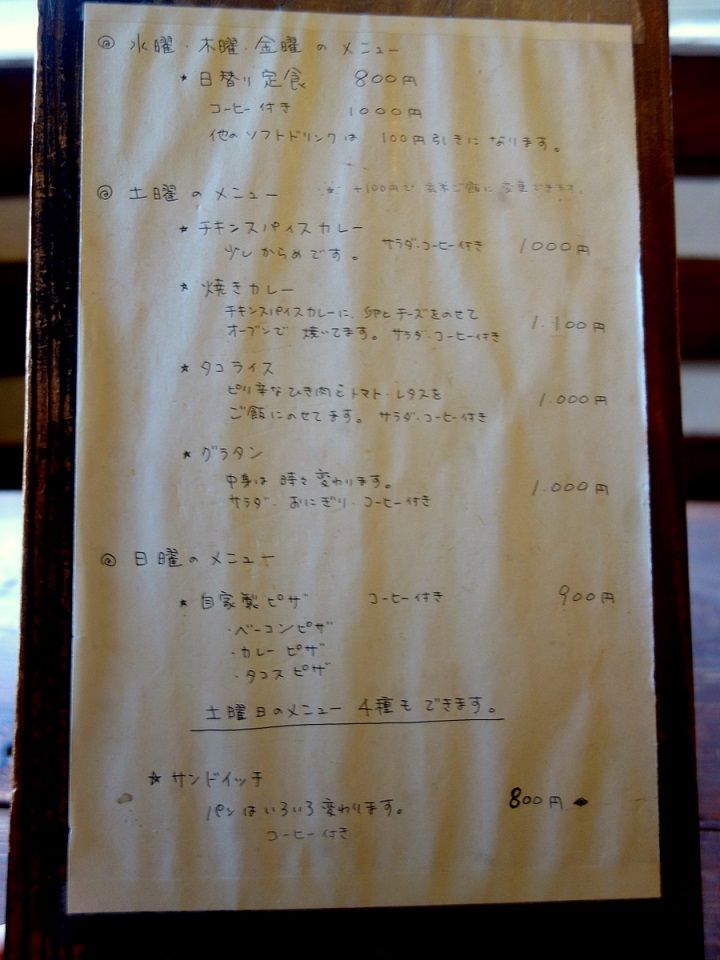 ◎ 水曜・木曜・金曜のメニュー
★ 日替り定食 800円
コーヒー付き 1000円
他のソフトドリンクは 100円引きになります。
◎ 土曜のメニュー ☆ +100円で 玄米ご飯に 変更できます。
★ チキンスパイスカレー
少しからめです。 サラダ・コーヒー付き 1000円
★ 焼きカレー
チキンスパイスカレーに、卵とチーズをのせて
オーブンで 焼いてます。 サラダ・コーヒー付き 1.100円
★ タコライス
ピリ辛なひき肉とトマト・レタスを
ご飯にのせてます。 サラダ・コーヒー付き 1.000円
★ グラタン
中身は 時々変わります。
サラダ・おにぎり・コーヒー付き 1.000円
◎ 日曜のメニュー
★ 自家製ピザ コーヒー付き 900円
・ベーコンピザ
・カレーピザ
・タコスピザ
土曜日のメニュー 4種も できます。
☆ サンドイッチ
パンはいろいろ変わります。 800円
コーヒー付き